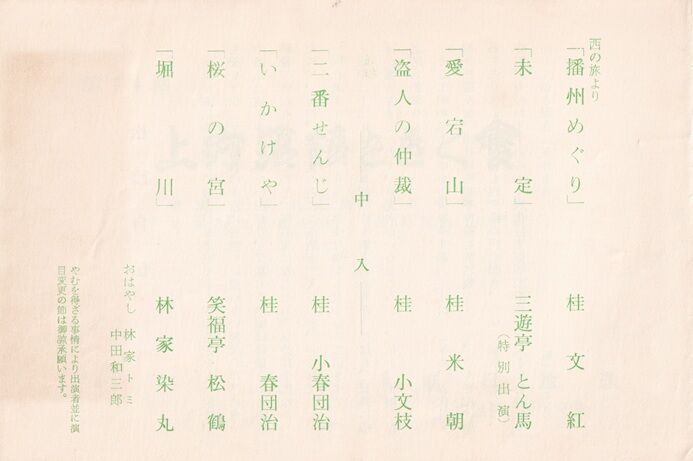 西の旅より
「播州めぐり」 桂文紅
「未定」 三遊亭とん馬
（特別出演）
「愛宕山」 桂米朝
「盗人の仲裁」 桂小文枝
中入
「二番せんじ」 桂小春団治
「いかけや」 桂春団治
「桜の宮」 笑福亭松鶴
「堀川」 林家染丸
おはやし 林家トミ
中田和三郎
やむを得ざる事情により出演者並に演
目変更の節は御諒承願います。